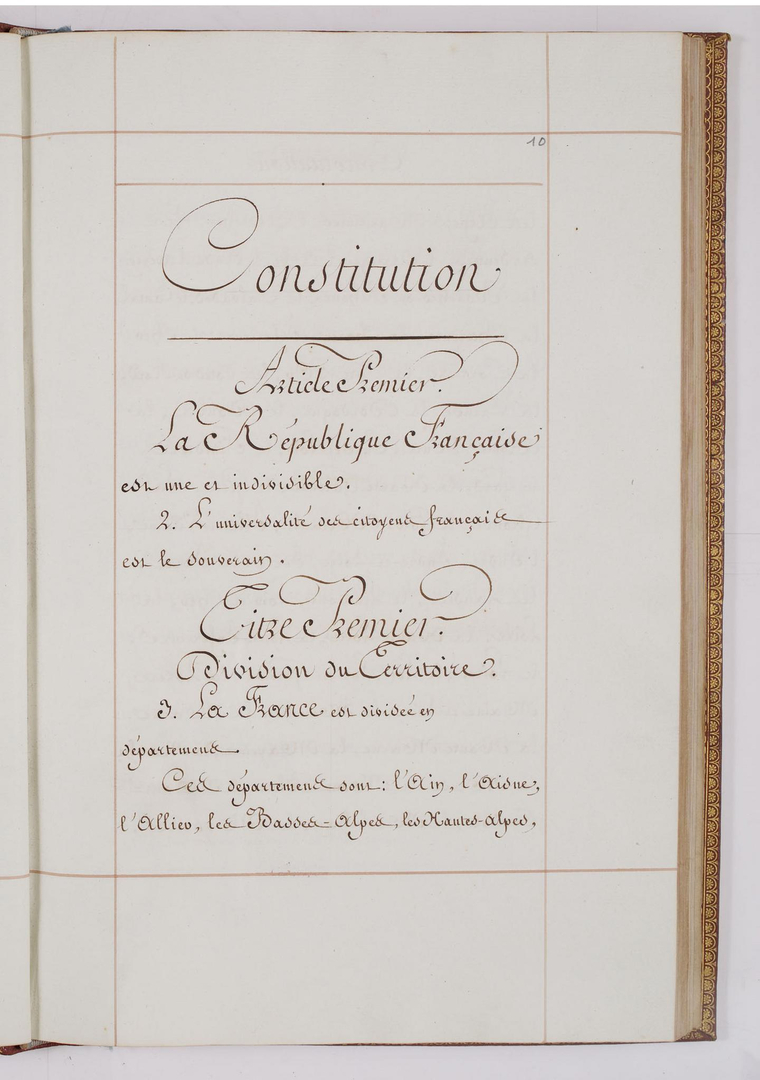 10
Constitution
Article Premier.
La République Française
est une et indivisible.
2. L'universalité des citoyens français
est le souverain.
Titre Premier.
Division du Territoire.
3. La France est divisée en
départemens
Ces départemens sont: l'Ain, l'Aisne,
l'Allier, les Basses-Alpes, les Hautes-Alpes,